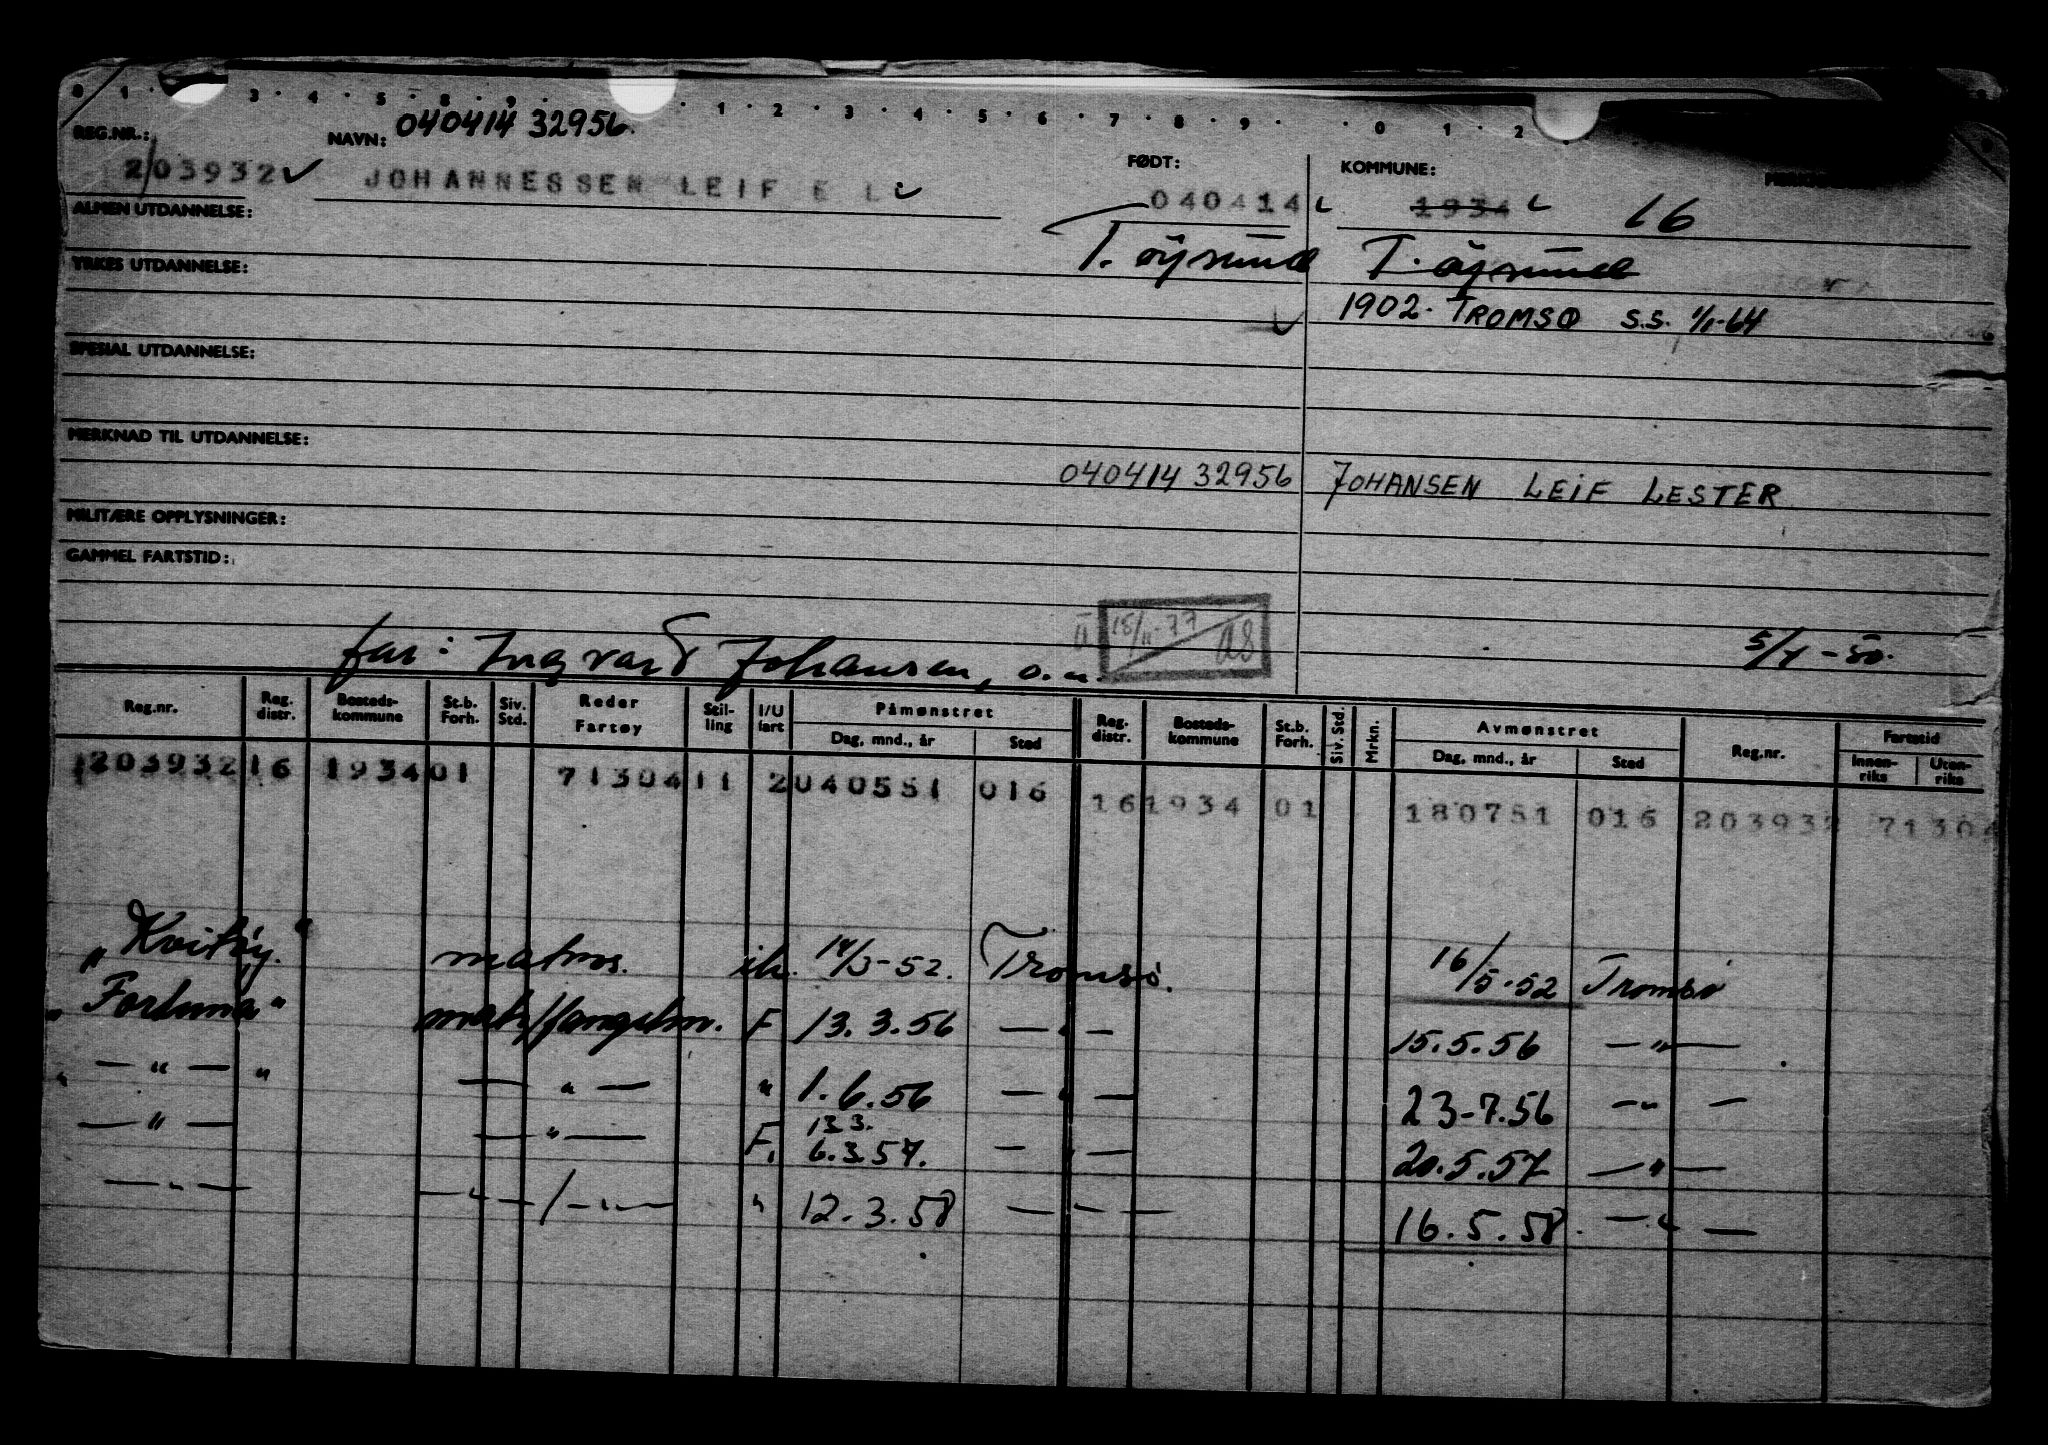 0 1 · 3 · 4 · 5 · 8 · 9 · · 1 · 2 · 3 · 4 · 5 · 6 · 7 · 8 · 9 · · 0 1 · 2
REG.NR.: NAVN: 040414 32956. FØDT: KOMMUNE:
203932 JOHANNESSEN LEIF E L 040414 1934 16
ALMEN UTDANNELSE: T. øysund T. øysund
YRKES UTDANNELSE:
1902. TROMSØ S.S. 1/1-64
SPESIAL UTDANNELSE:
MERKNAD TIL UTDANNELSE:
040414 32956 JOHANSEN LEIF LESTER
MILITÆRE OPPLYSNINGER:
GAMMEL FARTSTID:
far: Ingvard Johansen, s.n. II 15/11-77 5/4-50.
Reg.nr. Reg. distr. Bosteds-kommune St.b. Forh. Siv. Std. Reder Fartøy Stil-ling I/U fart Påmønstret Dag, mnd., år Sted Reg. distr. Bosteds-kommune St.b. Forh. Siv. Std. Mrkn. Avmønstret Dag, mnd., år Sted Reg.nr. Fartstid Innen-riks Uten-riks
203932 16 1934 01 71304 11 2 040551 016 16 1934 01 180751 016 203932 71304
"Kvitøy." matros. ih. 14/3-52. Tromsø. 16/5-52 Tromsø
"Fortuna" matr/fangstm. F 13.3.56 — " — 15.5.56 — " —
" — " — " — " — " 1.6.56 — " — 23-7.56 — " —
— " — — " — F. 13 3. 6.3.57. — " — 20.5.57 — " —
— " — — " — / — " — " 12.3.58 — " — 16.5.58. — " —